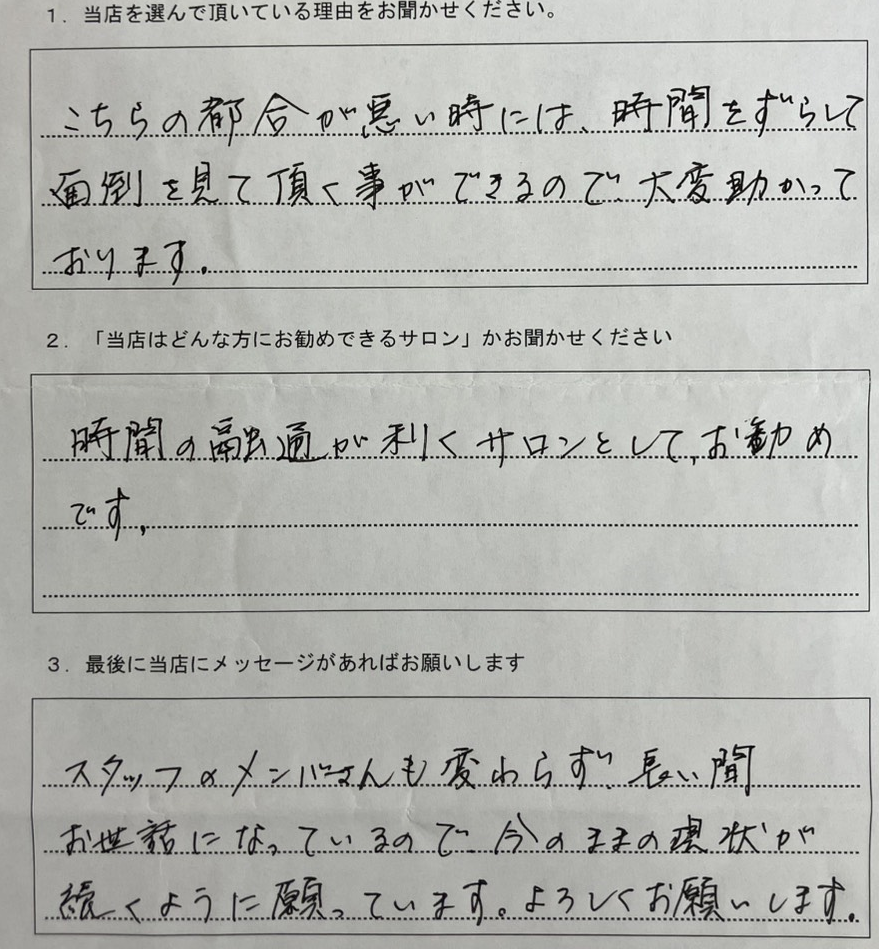 １．当店を選んで頂いている理由をお聞かせください。
こちらの都合が悪い時には、時間をずらして
面倒を見て頂く事ができるので、大変助かって
おります。
２．「当店はどんな方にお勧めできるサロン」かお聞かせください
時間の融通が利くサロンとして、お勧め
です。
３．最後に当店にメッセージがあればお願いします
スタッフのメンバさんも変わらず、長い間
お世話になっているので、今のままの現状が
続くように願っています。よろしくお願いします。